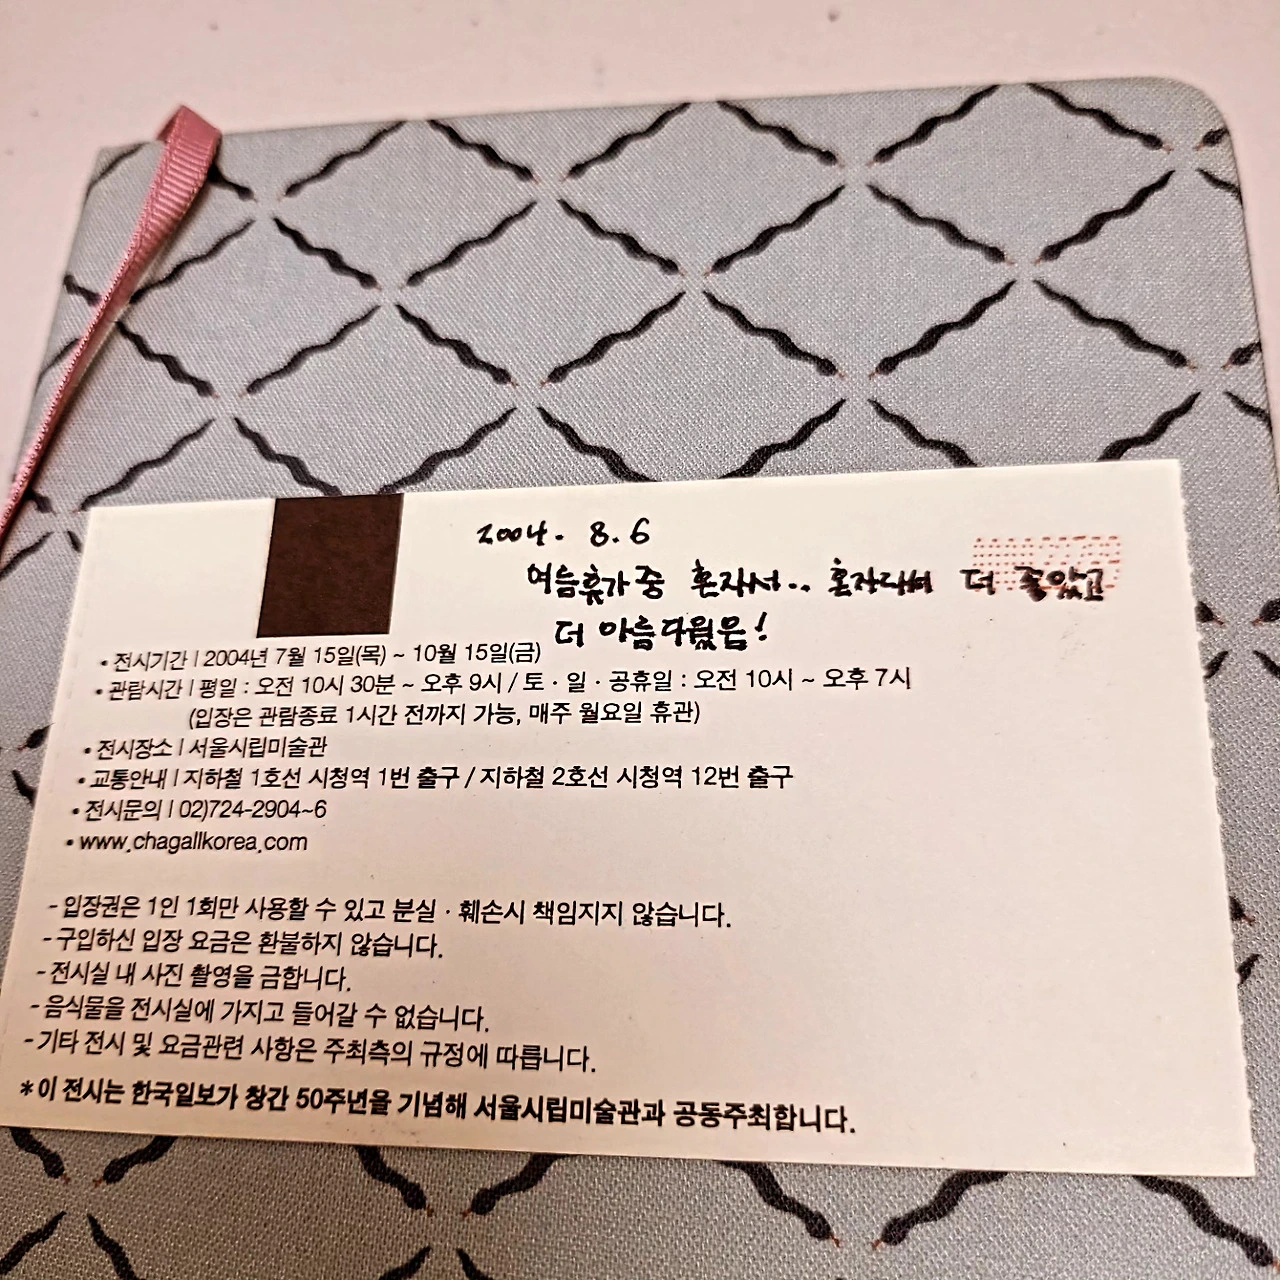 2004. 8. 6
여름휴가 중 혼자서.. 혼자라서 더 좋았고
더 아름다웠음!
• 전시기간 | 2004년 7월 15일(목) ~ 10월 15일(금)
• 관람시간 | 평일 : 오전 10시 30분 ~ 오후 9시 / 토 · 일 · 공휴일 : 오전 10시 ~ 오후 7시
(입장은 관람종료 1시간 전까지 가능, 매주 월요일 휴관)
• 전시장소 | 서울시립미술관
• 교통안내 | 지하철 1호선 시청역 1번 출구 / 지하철 2호선 시청역 12번 출구
• 전시문의 | 02)724-2904~6
• www.chagallkorea.com
- 입장권은 1인 1회만 사용할 수 있고 분실 · 훼손시 책임지지 않습니다.
- 구입하신 입장 요금은 환불하지 않습니다.
- 전시실 내 사진 촬영을 금합니다.
- 음식물을 전시실에 가지고 들어갈 수 없습니다.
- 기타 전시 및 요금관련 사항은 주최측의 규정에 따릅니다.
* 이 전시는 한국일보가 창간 50주년을 기념해 서울시립미술관과 공동주최합니다.